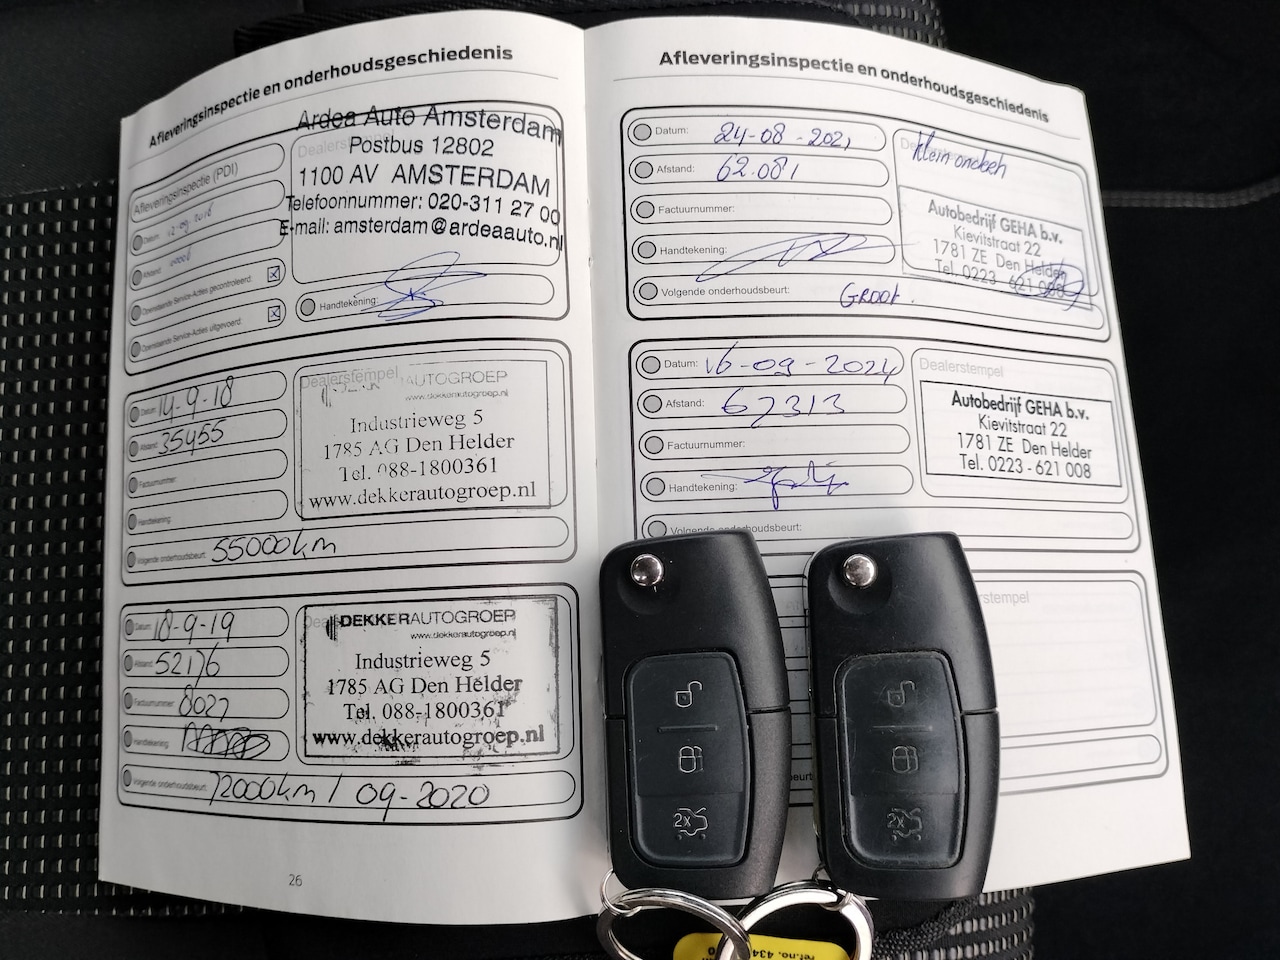 Afleveringsinspectie en onderhoudsgeschiedenis
Afleveringsinspectie (PDI)
Datum:
Afstand:
Openstaande Service-Acties gecontroleerd:
Openstaande Service-Acties uitgevoerd:
Ardea Auto Amsterdam
Postbus 12802
1100 AV AMSTERDAM
Telefoonnummer: 020-311 27 00
E-mail: amsterdam@ardeaauto.nl
Handtekening:
Datum: 14-9-18
Afstand: 35455
Factuurnummer:
Handtekening:
Volgende onderhoudsbeurt: 55000km
Dealerstempel
AUTOGROEP
www.dekkerautogroep.nl
Industrieweg 5
1785 AG Den Helder
Tel. 088-1800361
www.dekkerautogroep.nl
Datum: 18-9-19
Afstand: 52176
Factuurnummer: 8027
Handtekening:
Volgende onderhoudsbeurt: 72000km / 09-2020
DEKKERAUTOGROEP
www.dekkerautogroep.nl
Industrieweg 5
1785 AG Den Helder
Tel. 088-1800361
www.dekkerautogroep.nl
26
Afleveringsinspectie en onderhoudsgeschiedenis
Datum: 24-08-2021
Afstand: 62.081
Factuurnummer:
Handtekening:
Volgende onderhoudsbeurt: GROOt.
klein
Autobedrijf GEHA b.v.
Kievitstraat 22
1781 ZE Den Helder
Tel. 0223 - 621 008
Datum: 16-09-2024
Afstand: 67313
Factuurnummer:
Handtekening:
Volgende onderhoudsbeurt:
Dealerstempel
Autobedrijf GEHA b.v.
Kievitstraat 22
1781 ZE Den Helder
Tel. 0223 - 621 008
stempel
2x
2x
ref.no. 434